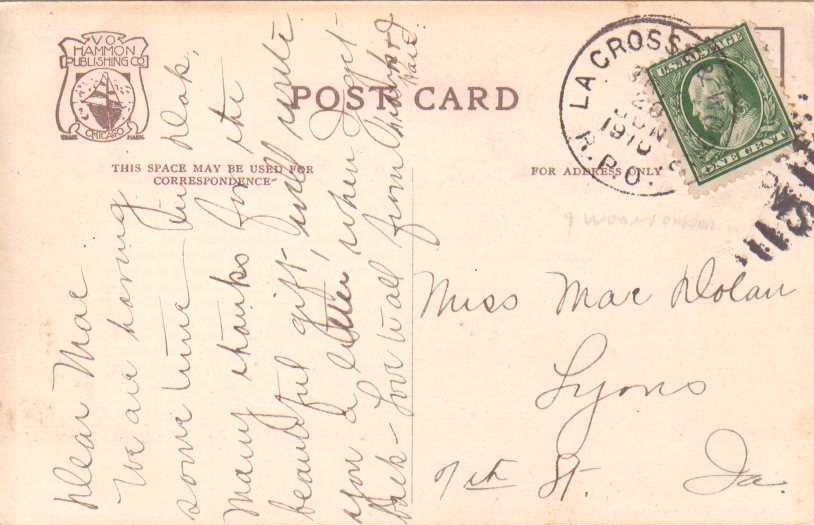 V.O.
HAMMON
PUBLISHING CO
CHICAGO
TRADE MARK
POST CARD
THIS SPACE MAY BE USED FOR
CORRESPONDENCE
FOR ADDRESS ONLY
LA CROSSE
28
JUN
1910
R.P.O.
U.S. POSTAGE
ONE CENT
Dear Mae
We are having
some time in Dak.
Many thanks for the
beautiful gift will write
you a letter when I get
back - Love to all from
Miss Mae Dolan
Lyons
7th St. Ia.